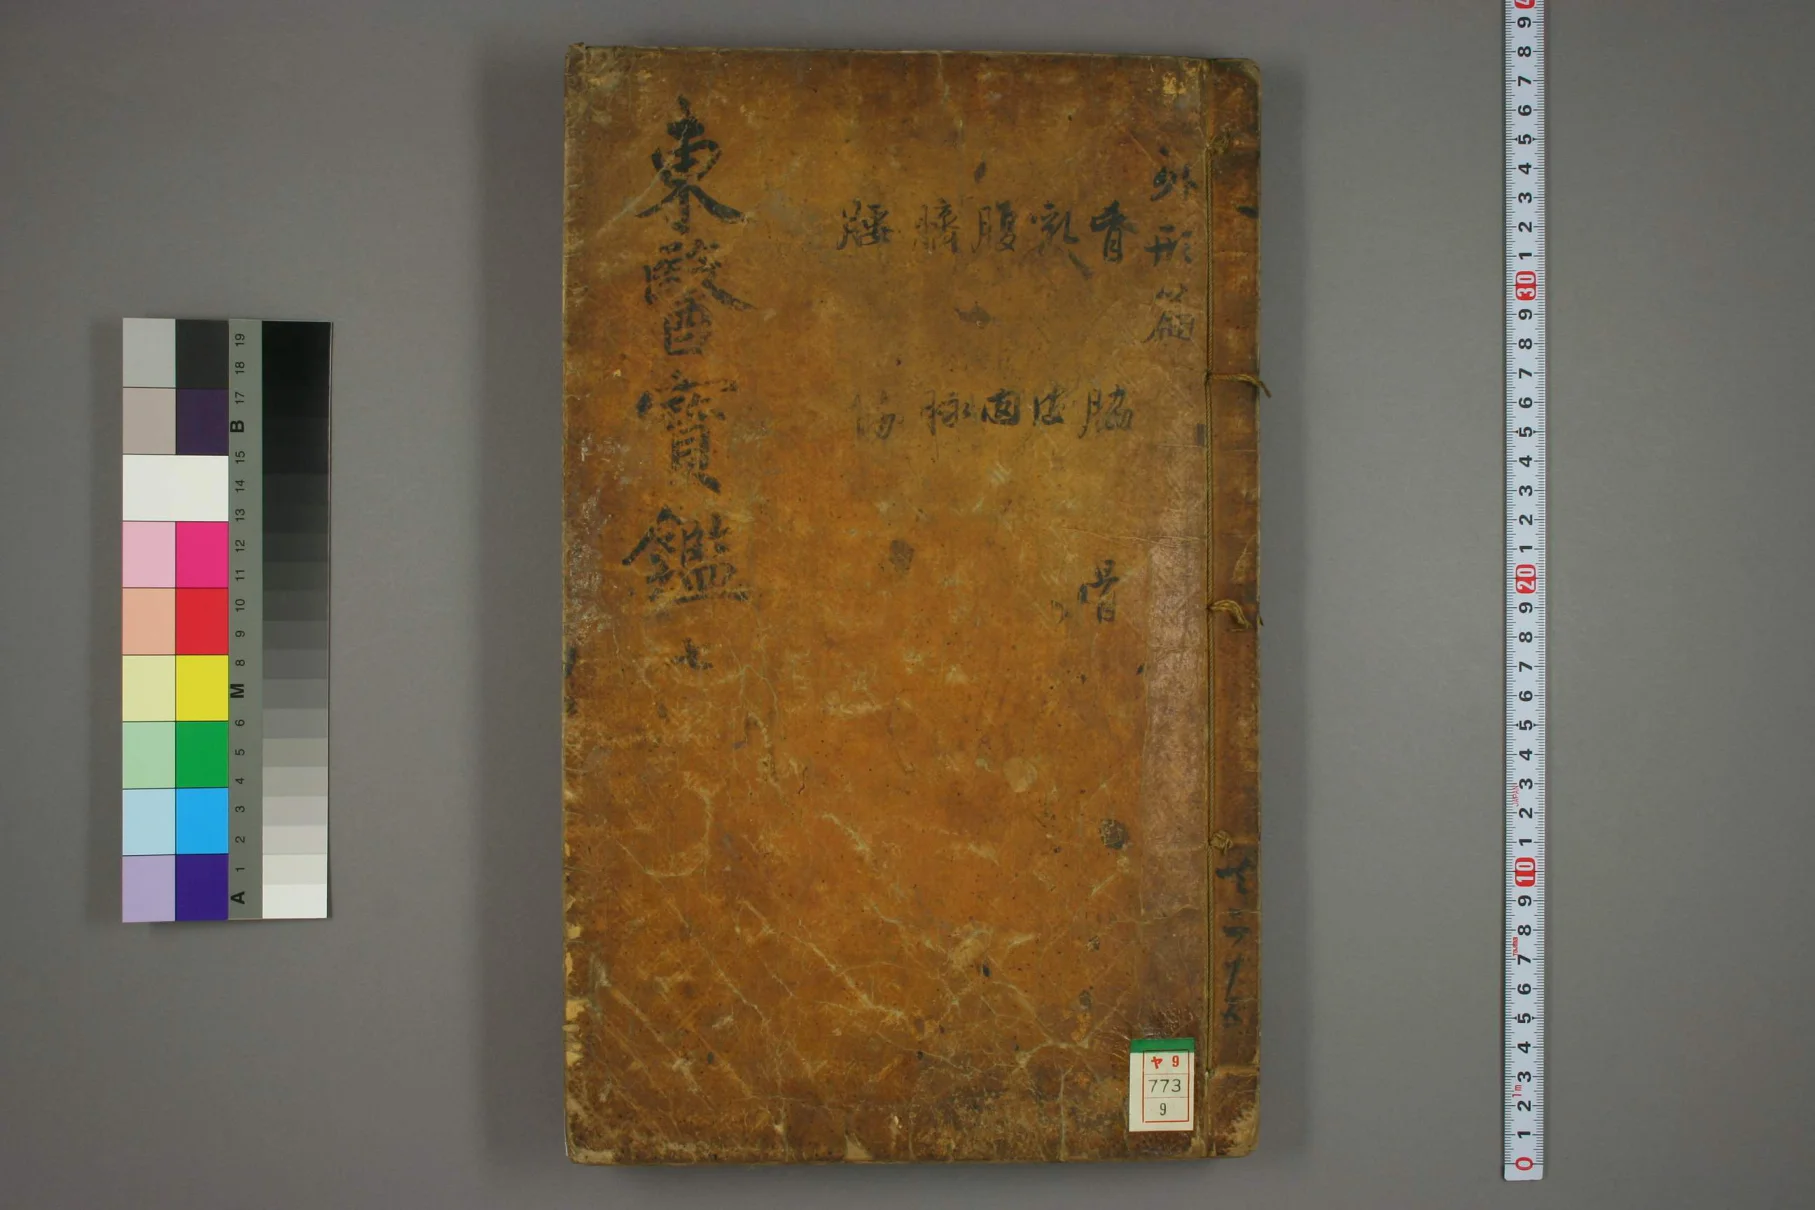 外形篇
胷乳腹臍腰
脇皮肉脉筋
骨
東醫寶鑑 七
共二十五
ヤ 9
773
9
A 1 2 3 4 5 6 M 8 9 10 11 12 13 14 15 B 17 18 19
0 1 2 3 4 5 6 7 8 9 10 1 2 3 4 5 6 7 8 9 20 1 2 3 4 5 6 7 8 9 30 1 2 3 4 5 6 7 8 9
1m
JAPAN